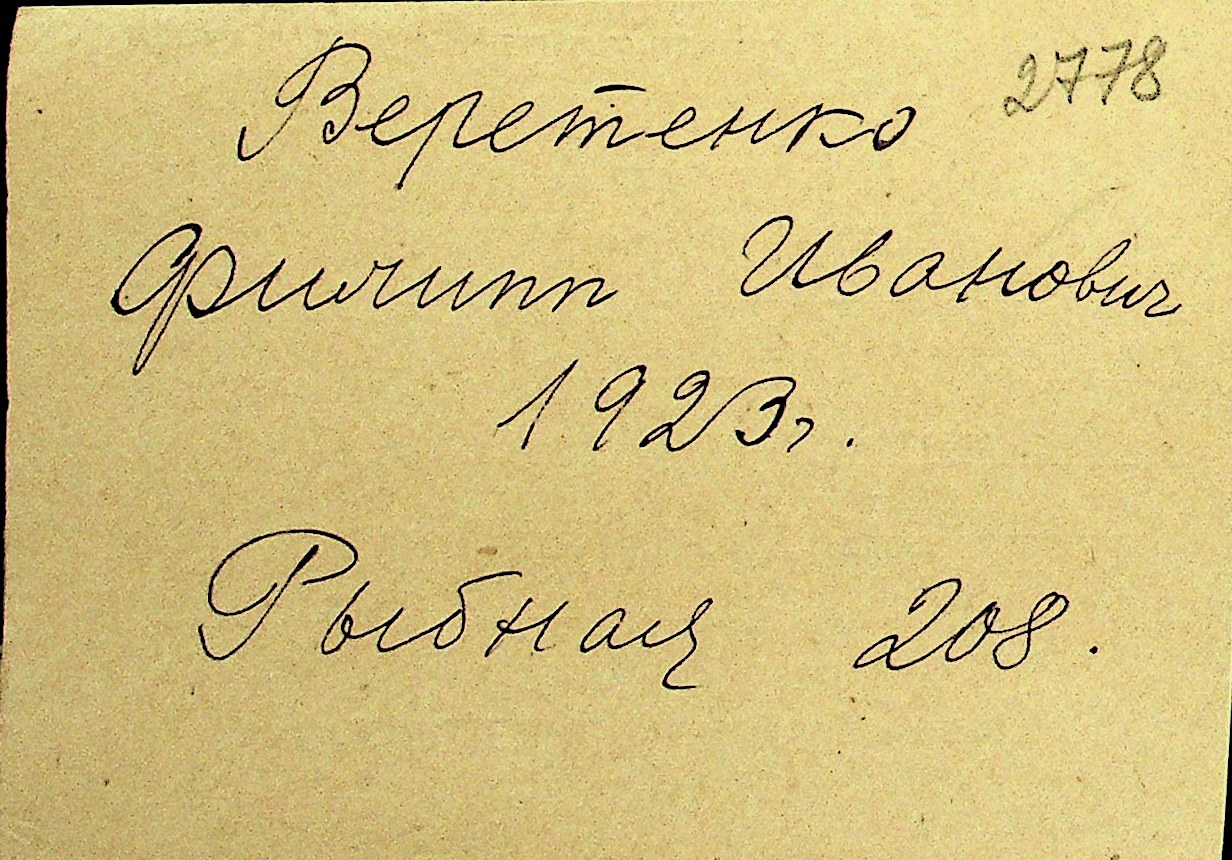 Веретенко 2778
Филипп Иванович
1923г.
Рыбная 208.